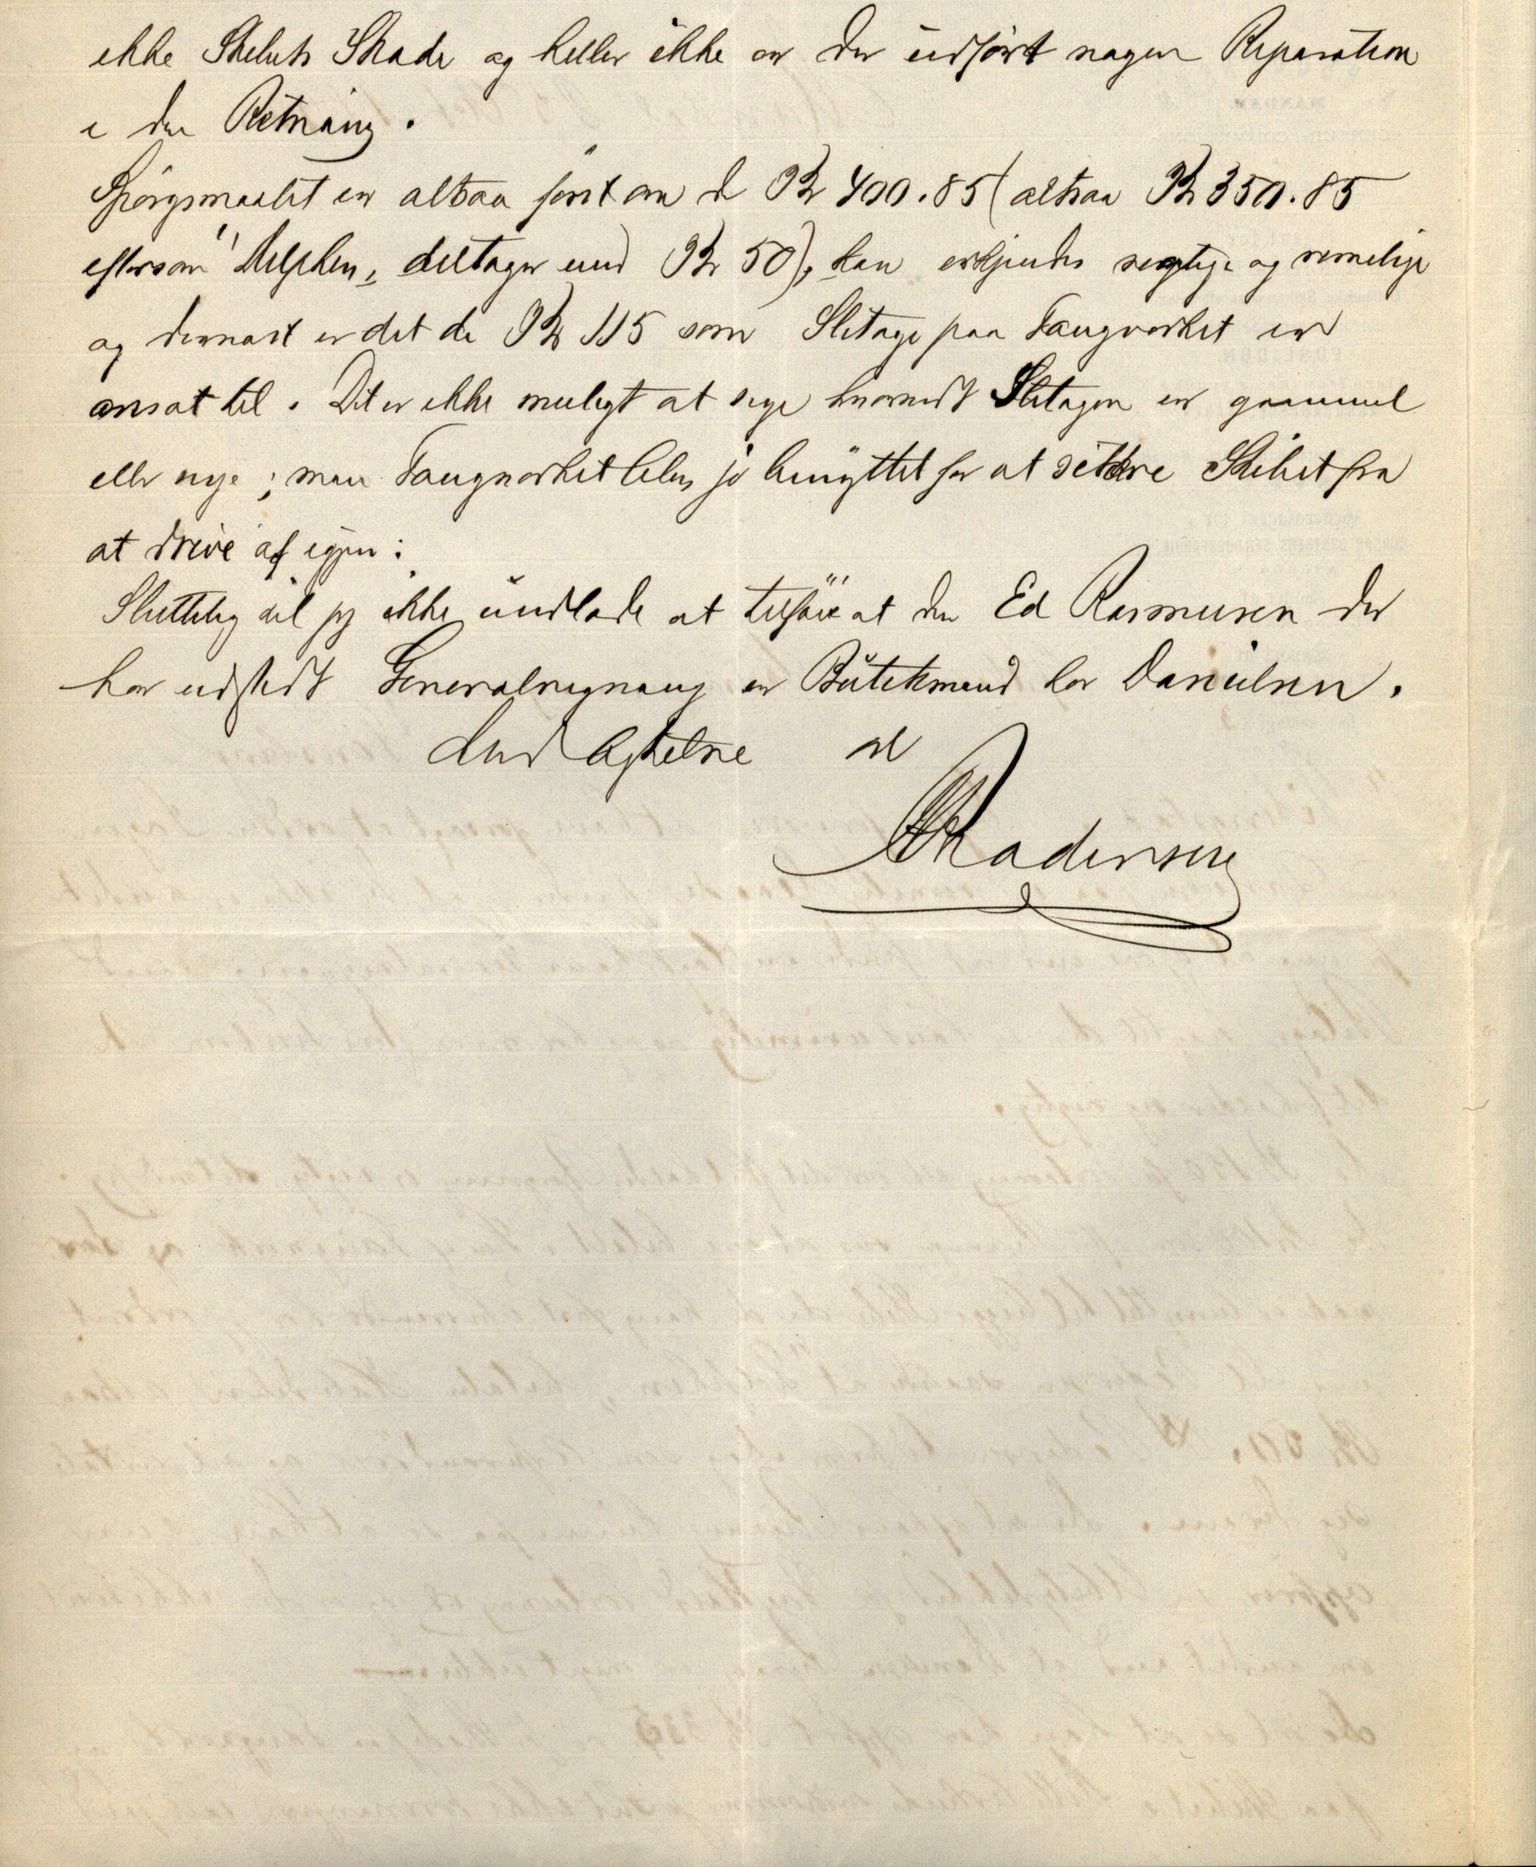 ikke Skibets Skade og heller ikke er der udført nogen Reparation
i den Retning.
Spörgsmaalet er altsaa först om de Kr 400.85 (altsaa Kr 350.85
eftersom "Delphin" deltager med Kr 50), kan erkjendes rigtige og rimelige
og dernæst er det de Kr 115 som Slitage paa Taugverket er
ansat til. Det er ikke muligt at sige hvorvidt Slitagen er gammel
eller nye; men Taugverket blev jo benyttet for at sikkre Skibet fra
at drive af igjen:
Sluttelig vil jeg ikke undlade at tilföie at den Ed Rasmusen der
har udstedt Generalregning er Butikmand hos Danielsen.
Med Agtelse